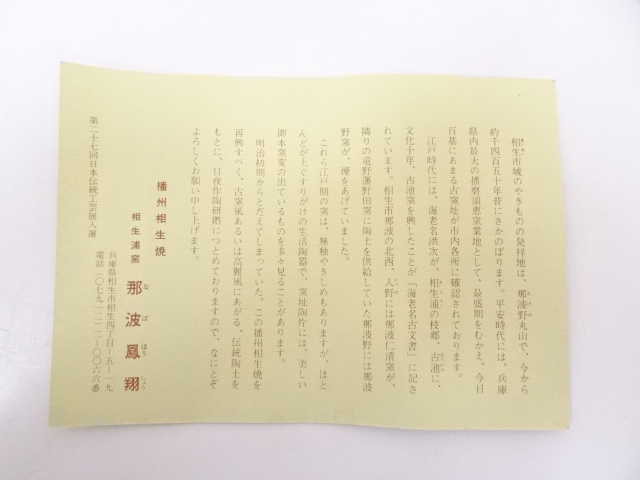 相生市域のやきものの発祥地は、那波野丸山で、今から
約千四百五十年昔にさかのぼります。平安時代には、兵庫
県内最大の播磨須恵窯業地として、最盛期をむかえ、今日
百基にあまる古窯址が市内各所に確認されております。
江戸時代には、海老名洪次が、相生浦の枝郷、古池に、
文化十年、古池窯を興したことが『海老名古文書』に記さ
れています。相生市那波の北西、入野には那波仁清窯が、
隣りの竜野藩野田窯に陶土を供給していた那波野には那波
野窯が、煙をあげていました。
これら江戸期の窯は、無釉やきしめもありますが、ほと
んどが上ぐすりがけの生活陶器で、窯址陶片には、美しい
御本窯変の出ているものを多々見ることがあります。
明治初期からとだえてしまっていた、この播州相生焼を
再興すべく、古窯風あるいは高麗風にあがる、伝統陶土を
もとに、日夜作陶研鑽につとめておりますので、なにとぞ
よろしくお願い申し上げます。
播州相生焼
相生浦窯 那波鳳翔
なば ほうしょう
兵庫県相生市相生四丁目一五―一九
電話(〇七九一二)二―〇〇六六番
第二十七回日本伝統工芸展入選